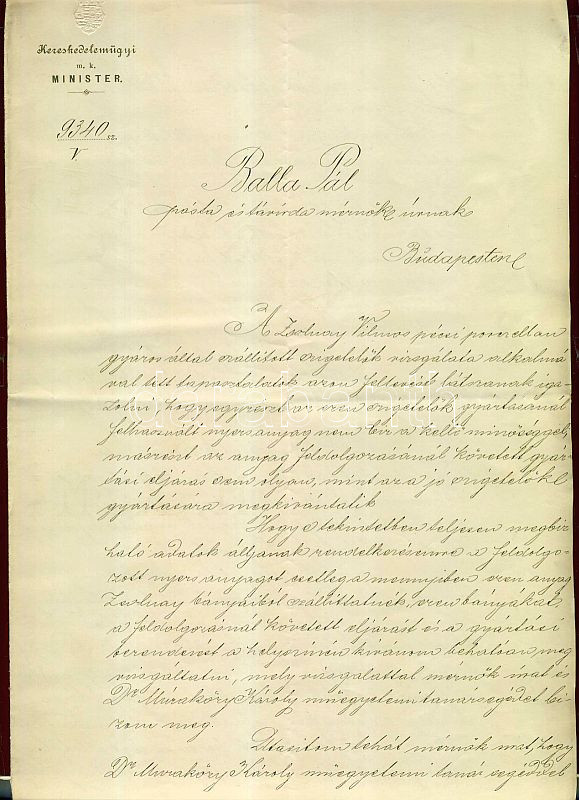 Kereskedelemügyi
m. k.
MINISTER.
9340 sz.
V
Balla Pál
pósta és távirda mérnök úrnak
Budapesten
A Zsolnay Vilmos pécsi porcellán
gyáros által szállított szigetelők vizsgálata alkalmá
val tett tapasztalatok azon feltevést látszanak iga-
zolni, hogy egyrészt az ezen szigetelők gyártásánál
felhasznált nyers anyag nem bir a kellő minőséggel,
másrészt az anyag feldolgozásánál követett gyár-
tási eljárás sem olyan, mint az a jó szigetelők
gyártására megkivántatik
Hogy e tekintetben teljesen megbiz-
ható adatok álljanak rendelkezésemre a feldolgo-
zott nyers anyagot esetleg a mennyiben ezen anyag
Zsolnay bányáiból szállittatnék, ezen bányákat,
a feldolgozásnál követett eljárást és a gyártási
berendezést a helyszinen kivánom behatóan meg
vizsgáltatni, mely vizsgálattal mérnök urat és
Dr Muraközy Károly műegyetemi tanársegédet bi-
zom meg.
Utasitom tehát mérnök urat, hogy
Dr Muraközy Károly műegyetemi tanár segéddel